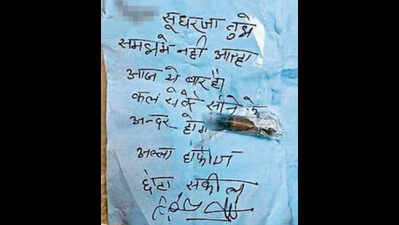 सूधरजा तुझे
समझमे नही आरहा
आज ये बार है।
कल ये तेरे सीने के
अन्दर होगा
अल्ला हाफीज
छोटा सकील